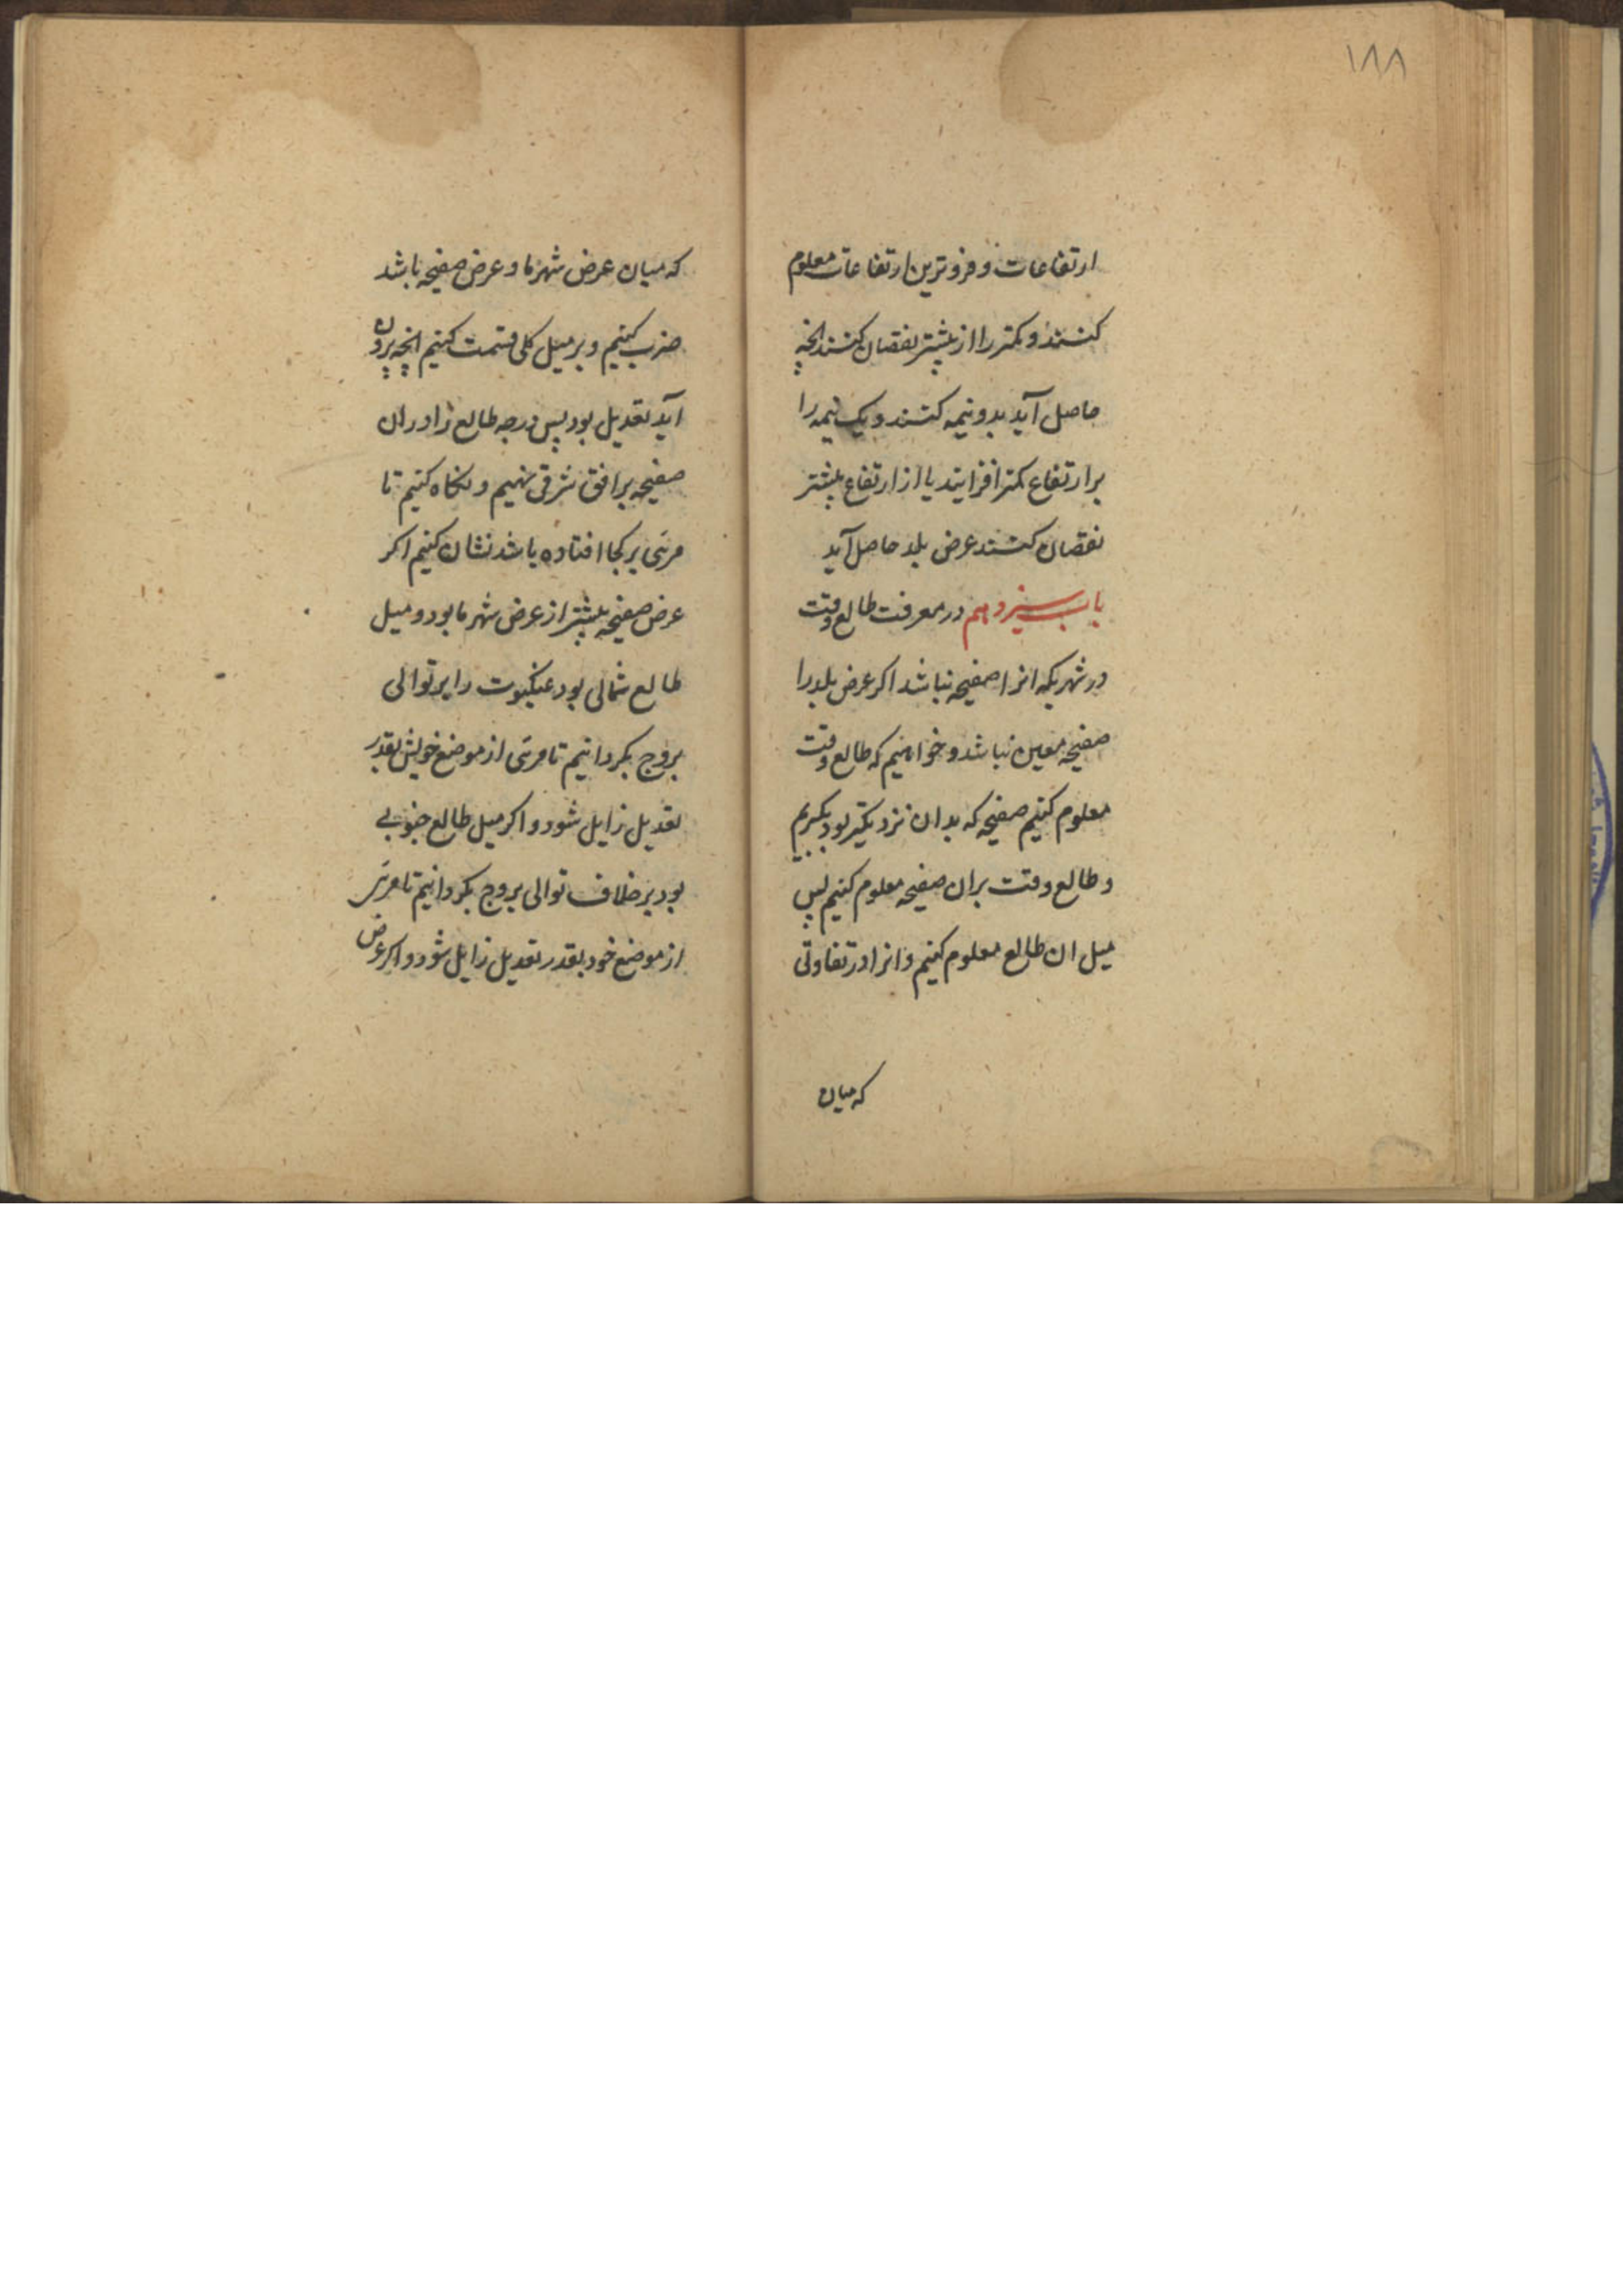 ۱۸۸
ارتفاعات و فروترین ارتفاعات معلوم
کنند و کمتر را از بیشتر نقصان کنند انچه
حاصل آید بدو نیمه کنند و یک نیمه را
بر ارتفاع کمتر افزایند یا از ارتفاع بیشتر
نقصان کنند عرض بلد حاصل آید
باب سیزدهم در معرفت طالع وقت
در شهریکه انرا صفیحه نباشد اکر عرض بلد را
صفیحه معین نباشد و خواهیم که طالع وقت
معلوم کنیم صفیحه که بدان نزدیکتر بود بکیریم
و طالع وقت بران صفیحه معلوم کنیم پس
میل ان طالع معلوم کنیم و انرا در تفاوتی
که میان
که میان عرض شهر ما و عرض صفیحه باشد
ضرب کنیم و بر میل کلی قسمت کنیم انچه بیرون
آید تعدیل بود پس درجه طالع را در ان
صفیحه بر افق شرقی نهیم و نکاه کنیم تا
مری بر کجا افتاده باشد نشان کنیم اکر
عرض صفیحه بیشتر از عرض شهر ما بود و میل
طالع شمالی بود عنکبوت را بر توالی
بروج بکردانیم تا مری از موضع خویش بقدر
تعدیل زایل شود و اکر میل طالع جنوبی
بود بر خلاف توالی بروج بکردانیم تا مری
از موضع خود بقدر تعدیل زایل شود و اکر عرض